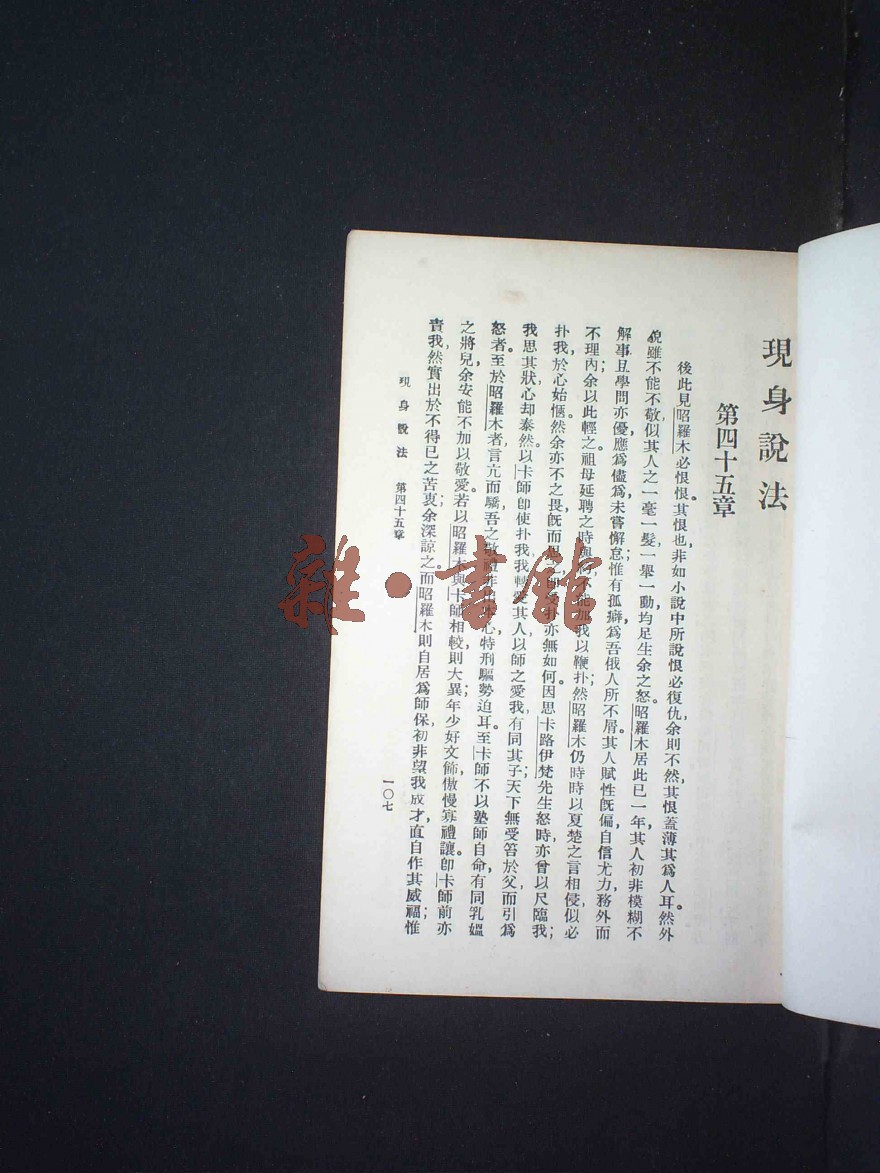 現身說法
第四十五章
後此見昭羅木必恨恨其恨也非如小說中所說恨必復仇余則不然其恨蓋薄其爲人耳然外
貌雖不能不敬似其人之一毫一髮一舉一動均足生余之怒。昭羅木居此已一年其人初非模糊不
解事且學問亦優應爲儘爲未嘗懈怠惟有孤癖爲吾俄人所不屑。其人賦性既偏自信尤力務外而
不理內余以此輕之。祖母延聘之時與 不能加我以鞭扑然昭羅木仍時時以夏楚之言相侵似必
扑我於心始愜然余亦不之畏既而思 受扑亦無如何因思卡路伊梵先生怒時亦曾以尺臨我；
我思其狀心却泰然以卡師即使扑我我轉愛其人以師之愛我有同其子；天下無受笞於父而引爲
怒者。至於昭羅木者言亢而驕吾之敬禮非出 心特刑驅勢迫耳至卡師不以塾師自命有同乳媼
之將兒余安能不加以敬愛若以昭羅木與卡師相較則大異；年少好文飾傲慢寡禮讓。卽卡師前亦
責我然實出於不得已之苦衷余深諒之。而昭羅木則自居爲師保初非望我成才直自作其威福；惟
現身說法　第四十五章
一〇七
雜·書館